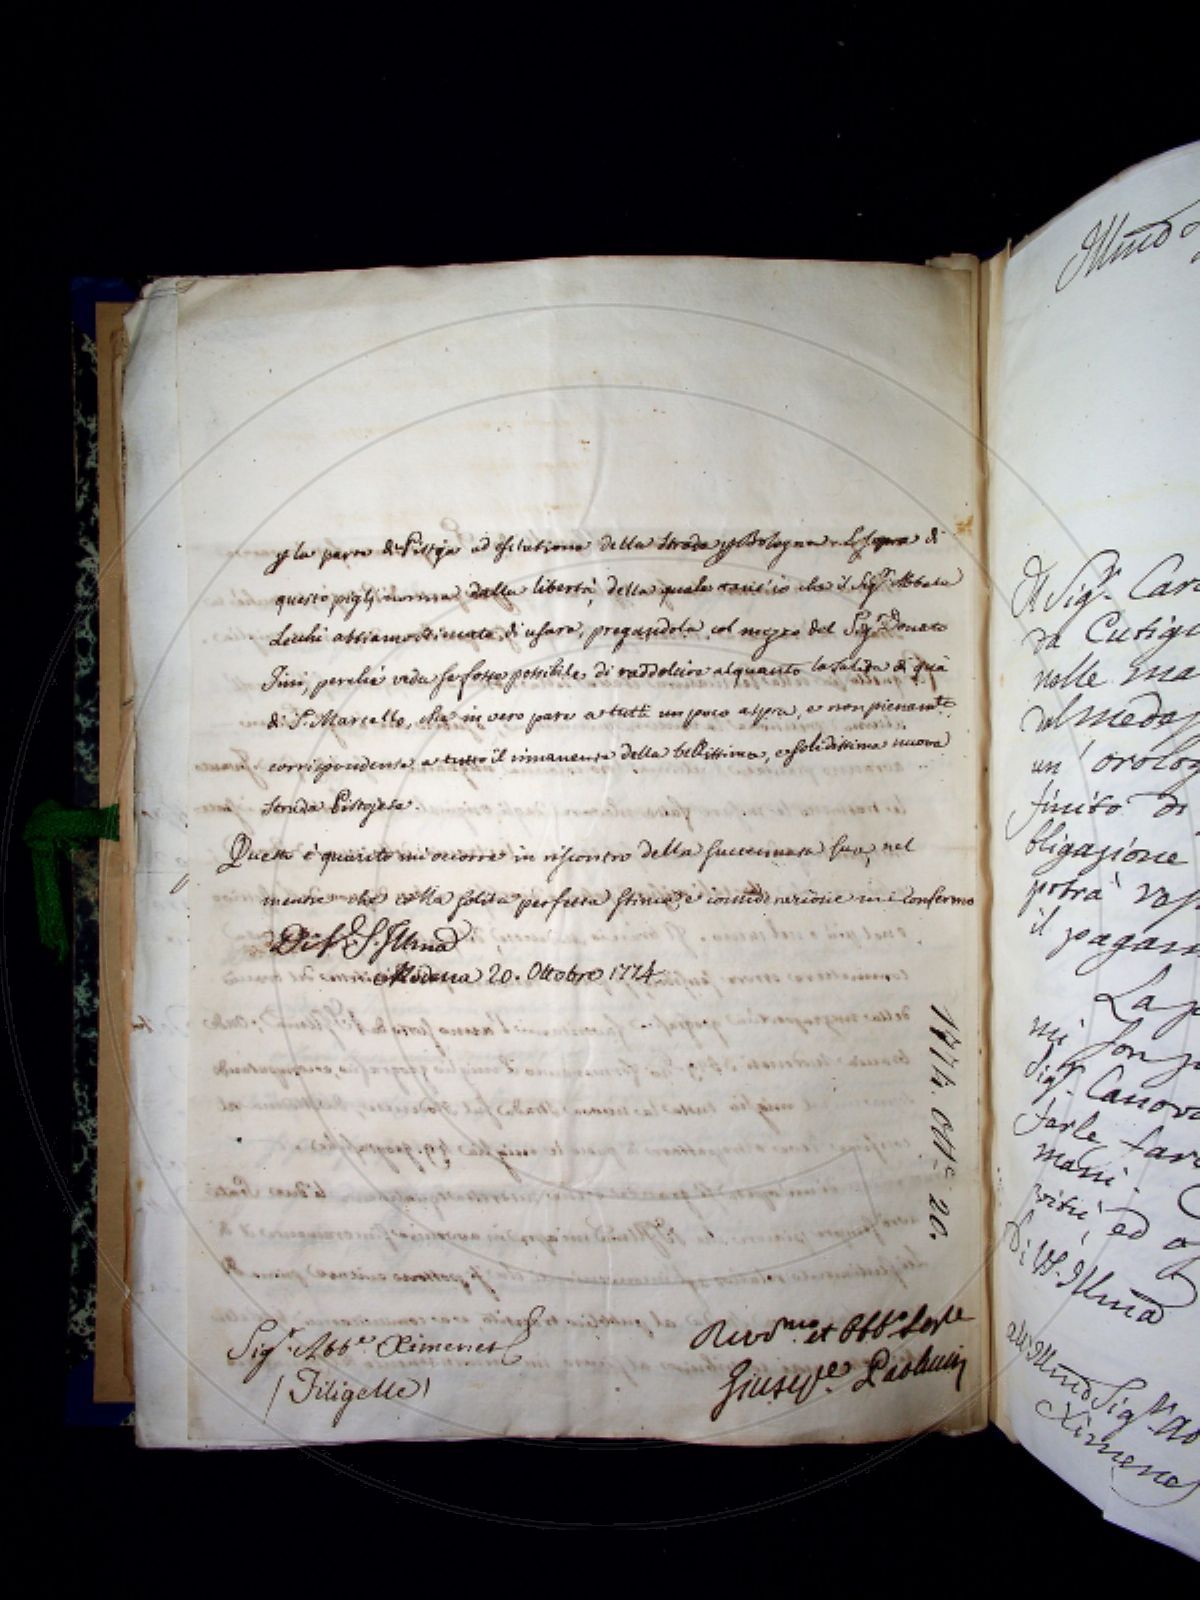 p la parte di Pistoja ad esclusione della Strada p Bologna e sopra di
questo pigli norma dalla libertà, della quale anch'io che il Sigr Abbate
Lecchi abbiamo stimato di usare, pregandola col mezzo del Sigr Donato
Fini, perché veda se fosse possibile di raddolcire alquanto la salita di quà
di S. Marcello, che in vero pare a tutti un poco aspra, e non pienamte
corrispondente a tutto il rimanente della bellissima, e solidissima nuova
Strada Pistojese.
Questo è quanto mi occorre in riscontro della succennata sua, nel
mentre che colla solita perfetta stima e considerazione mi confermo
Di V. S. Illma
Modena 20. Ottobre 1774
1774. Ott.e 20.
Sigr. Abb.e Ximenes
(Filigelle)
Devmo et Obbo Serre
Giuseppe Paolucci
Illmo
Il Sigr. Car
da Cutigl
nelle ma
un' orolog
finito di
bligazione
potrà
il pagam
La p
mi son
Sigr. Canova
farle fare
mani.
ed
Di VS. Illma
Illmo Sigr. Ab
Ximenes